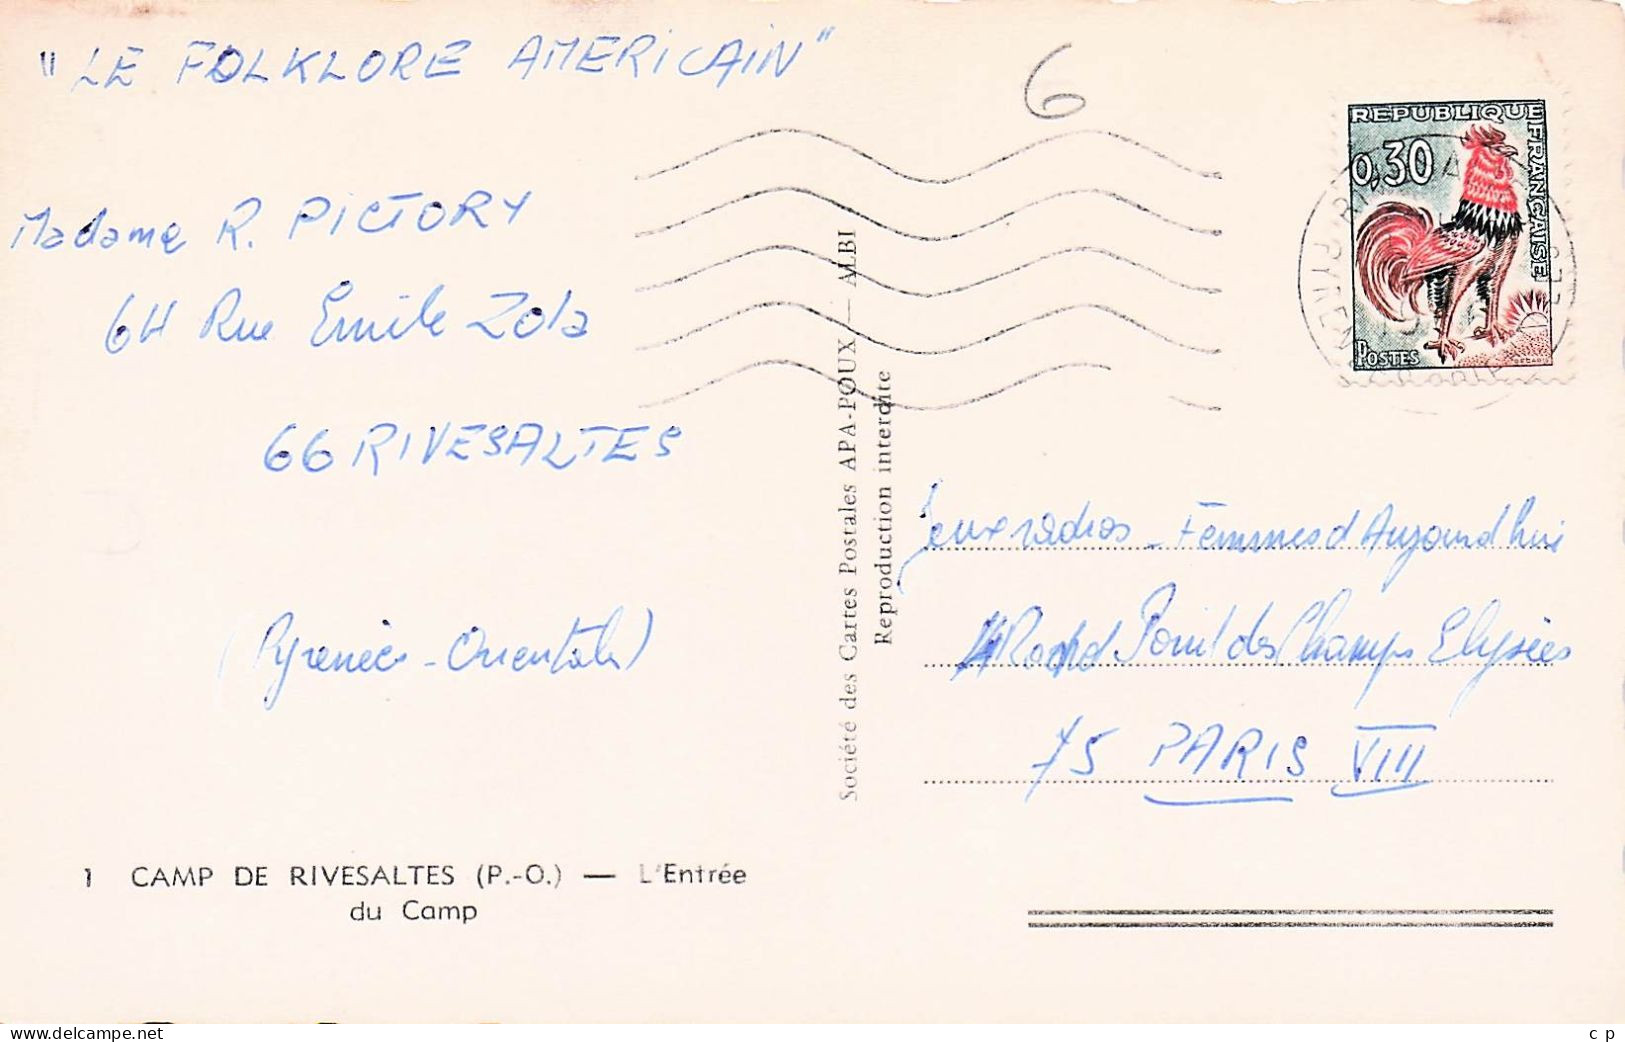 "LE FOLKLORE AMERICAIN"
6
Madame R. PICTORY
64 Rue Emile Zola
66 RIVESALTES
(Pyrénées-Orientales)
1 CAMP DE RIVESALTES (P.-O.) — L'Entrée
du Camp
Société des Cartes Postales APA-POUX — ALBI
Reproduction interdite
REPUBLIQUE FRANÇAISE
0,30
POSTES
DECARIS
Jeux radios - Femmes d'Aujourd'hui
Rond Point des Champs Elysées
75 PARIS VIII
www.delcampe.net
c p